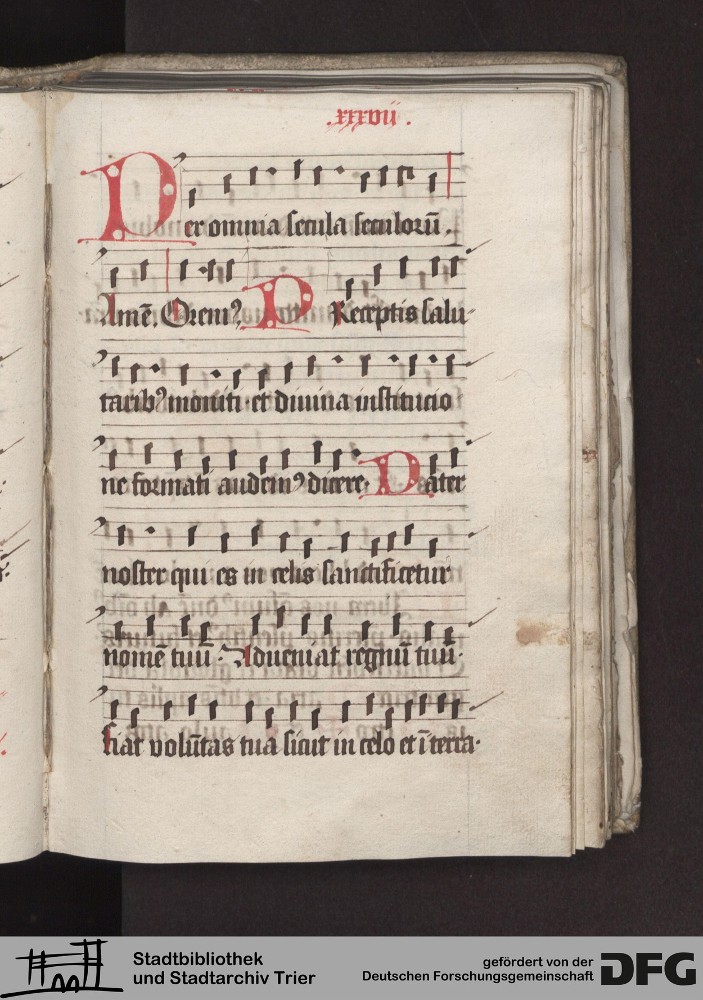 .xxxvii.
Per omnia secula seculorū.
Amē. Orem⁹. PReceptis salu-
tarib⁹ moniti· et diuina institucio
ne formati audem⁹ dicere· Pater
noster qui es in celis sanctificetur
nomē tuū· Adueniat regnū tuū·
fiat volūtas tua sicut in celo et ī terra·
Stadtbibliothek
und Stadtarchiv Trier
gefördert von der
Deutschen Forschungsgemeinschaft
DFG